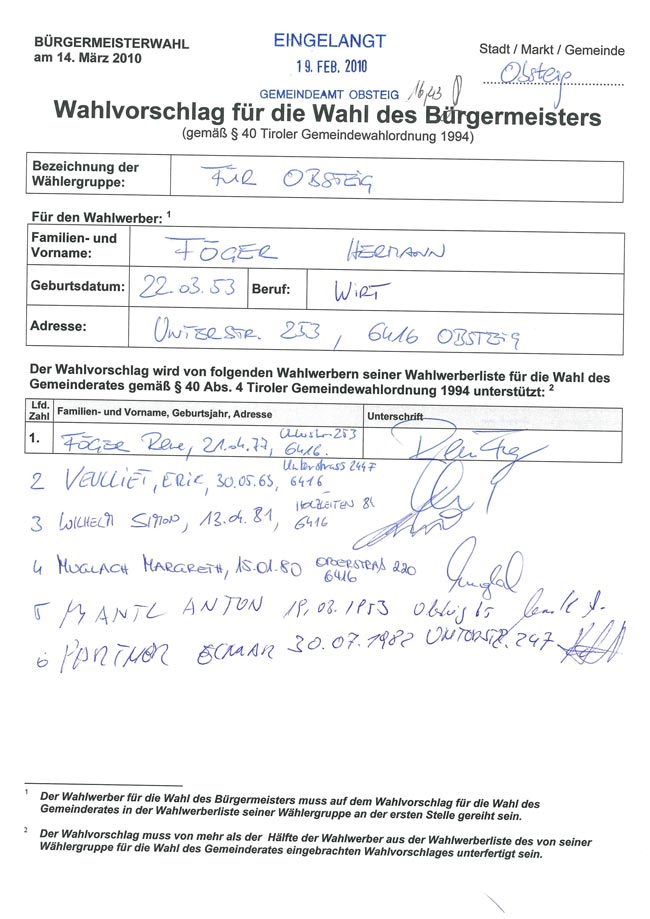 BÜRGERMEISTERWAHL
am 14. März 2010
EINGELANGT
19. FEB. 2010
GEMEINDEAMT OBSTEIG 16,43
Stadt / Markt / Gemeinde
Obsteig
Wahlvorschlag für die Wahl des Bürgermeisters
(gemäß § 40 Tiroler Gemeindewahlordnung 1994)
Bezeichnung der Wählergruppe: FÜR OBSTEIG
Für den Wahlwerber: 1
Familien- und Vorname: FÖGER HERMANN
Geburtsdatum: 22.03.53 Beruf: WIRT
Adresse: UNTERSTR. 253, 6416 OBSTEIG
Der Wahlvorschlag wird von folgenden Wahlwerbern seiner Wahlwerberliste für die Wahl des
Gemeinderates gemäß § 40 Abs. 4 Tiroler Gemeindewahlordnung 1994 unterstützt: 2
Lfd. Zahl Familien- und Vorname, Geburtsjahr, Adresse Unterschrift
1. FÖGER Rene, 21.04.77, Unterstr. 253 6416.
2 VEULLIET, ERIK, 30.05.63, Unterstrass 244 6416
3 WILHELM SIMON, 13.04.81, HOLZLEITEN 81 6416
4 MUGLACH MARGRETH, 15.01.80 OBERSTRAS 220 6416
5 MANTL ANTON 19.03.1953 Obsteig
6 30.07.1982 UNTERSTR. 247
1 Der Wahlwerber für die Wahl des Bürgermeisters muss auf dem Wahlvorschlag für die Wahl des
Gemeinderates in der Wahlwerberliste seiner Wählergruppe an der ersten Stelle gereiht sein.
2 Der Wahlvorschlag muss von mehr als der Hälfte der Wahlwerber aus der Wahlwerberliste des von seiner
Wählergruppe für die Wahl des Gemeinderates eingebrachten Wahlvorschlages unterfertigt sein.